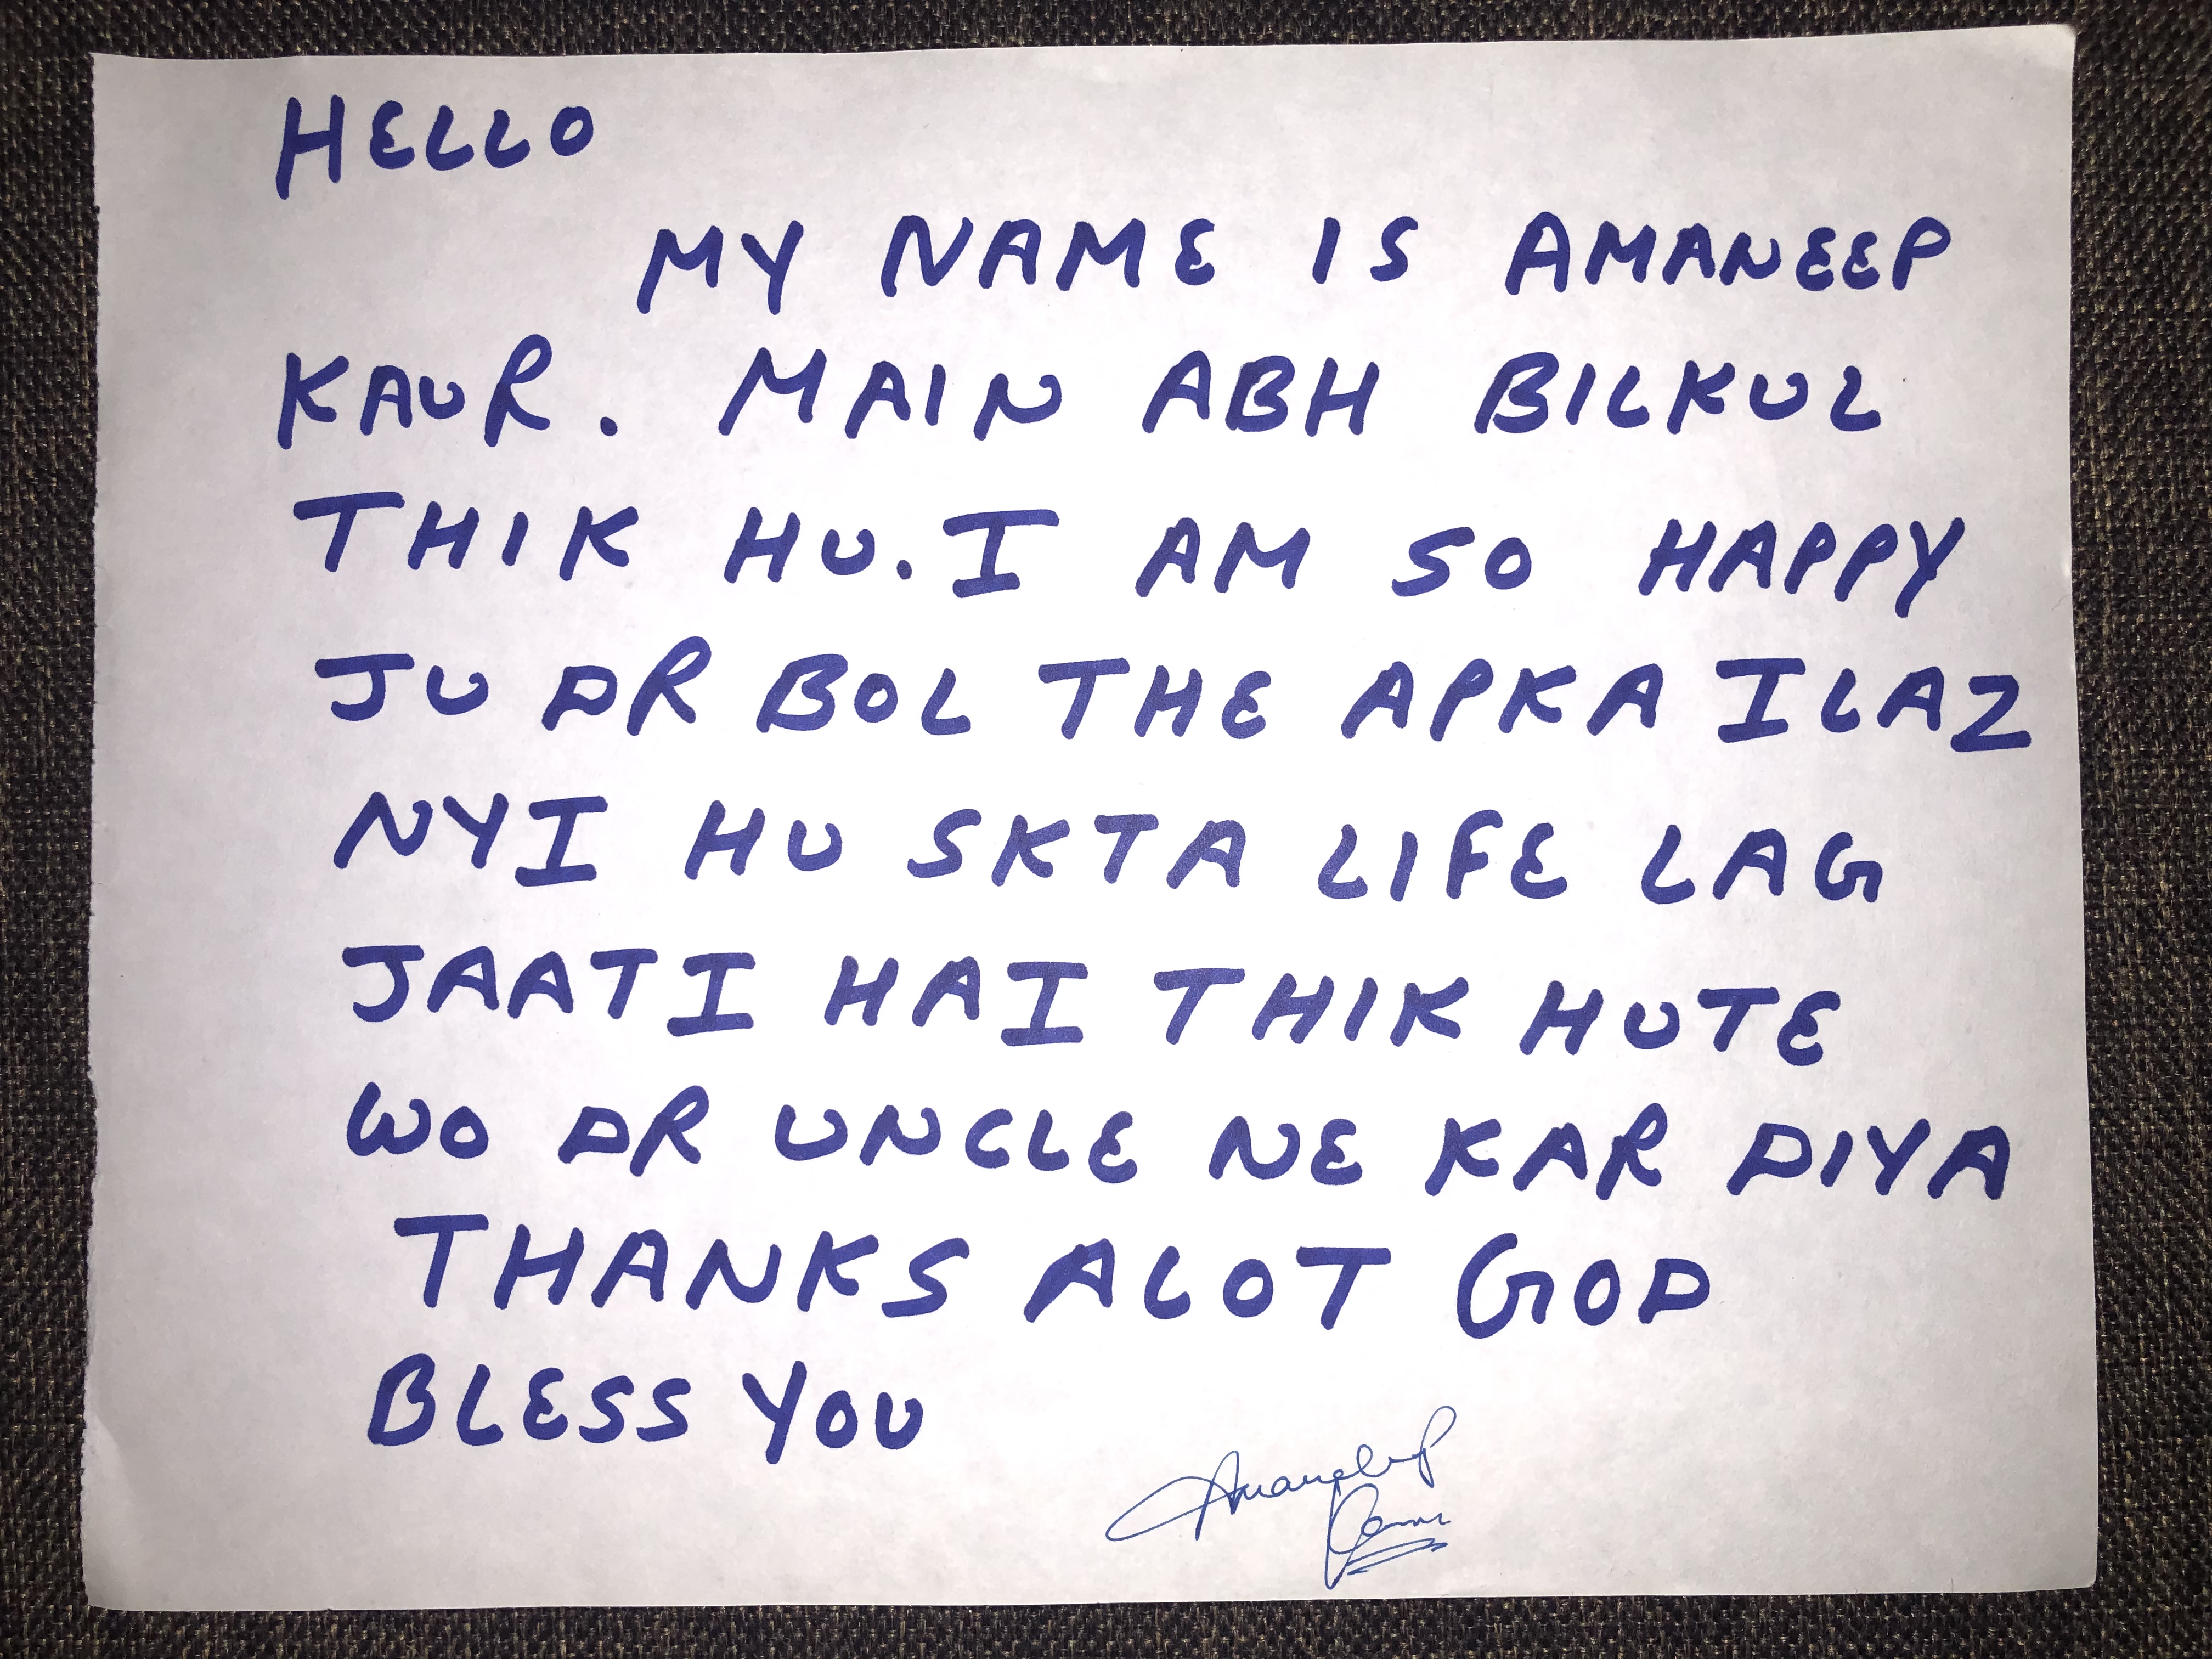 HELLO
MY NAME IS AMANEEP
KAUR. MAIN ABH BILKUL
THIK HU. I AM SO HAPPY
JU DR BOL THE APKA ILAZ
NYI HU SKTA LIFE LAG
JAATI HAI THIK HUTE
WO DR UNCLE NE KAR DIYA
THANKS ALOT GOD
BLESS YOU